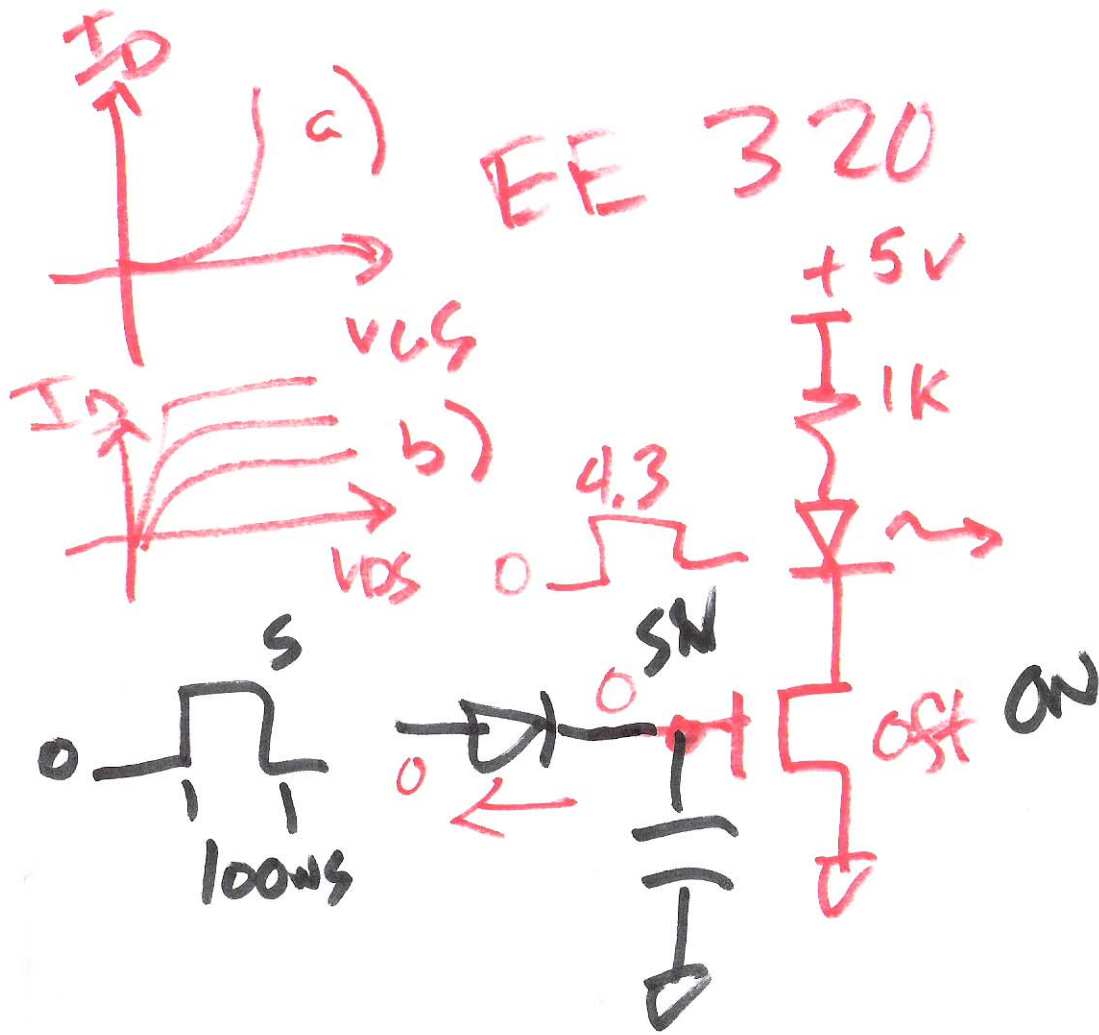 ID
a)
EE 320
VGS
+5V
1K
ID
b)
VDS
4.3
0
5
SN
0
0
0
Off
ON
100ns